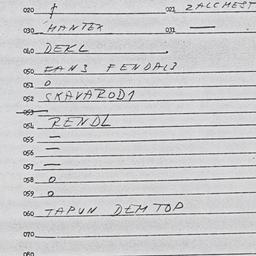 020 1 021 ZALCMEST
030 MANTEX 031 —
040 DEKL
050 FANS FENDAL3
051 0
052 SKAVAROD1
053
054 RENDL
055 —
056 —
057 —
058 0
059 0
060 TAPUN DEMTOP
070
080